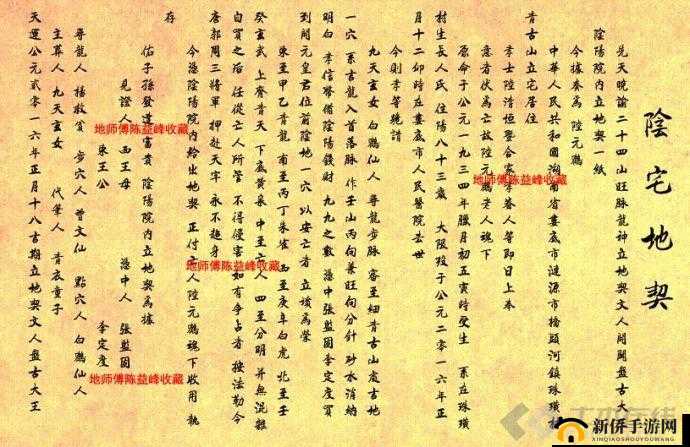 陰宅地契
先天曉諭二十四山旺脉龍神立地契文人開闢盤古大王
陰陽院內立地契一紙
今據養為 陸元鵬
中華人民共和國湖南省婁底市漣源市橋頭河鎮珠璜村
青古山立宅居住
孝士陸清恒暨合家孝眷人等即日上奉
意者伏為亡故陸元鵬老人魂下
原命于公元一九三四年臘月初五寅時受生 系在珠璜
村生長人氏 住陽八十三歲 大限歿于公元二零一六年正
月十二卯時在婁底市人民醫院去世
今則孝等乾請
九天玄女 白鶴仙人 尋龍步脉 審至細青古山處吉地
一穴 系亥龍入首落脉 作壬山丙向兼旺向分針 砂水消納
明白 孝信等備陰陽錢財 九九之數 憑中張監固李定度買
到開元皇君位前陰地一穴 以安亡者 立攻為塋
東至甲乙青龍 南至丙丁朱雀 西至庚辛白虎 北至壬
癸玄武 上齊青天 下底黃泉 中至亡人 四至分明 并無混雜
自買之后 任從亡人所管 不得侵害 如有爭占者 按法勒令
唐郭周三將軍 押赴天牢 永不超身
今憑陰陽院內給出地契 正付亡人陸元鵬魂下收用 執
存
佑子孫發達富貴 陰陽院內立地契為據
見證人 西王母 憑中人 張監固
東王公 李定度
尋龍人 楊救貧 步穴人 曾文仙 點穴人 白鶴仙人
主葬人 九天玄女 代筆人 青衣童子
天運公元貳零一六年正月十八吉期立地契文人盤古大王
地师傅陈益峰收藏
地师傅陈益峰收藏
地师傅陈益峰收藏
地师傅陈益峰收藏
新侨手游网
XINQIAOSHOUYOUWANG